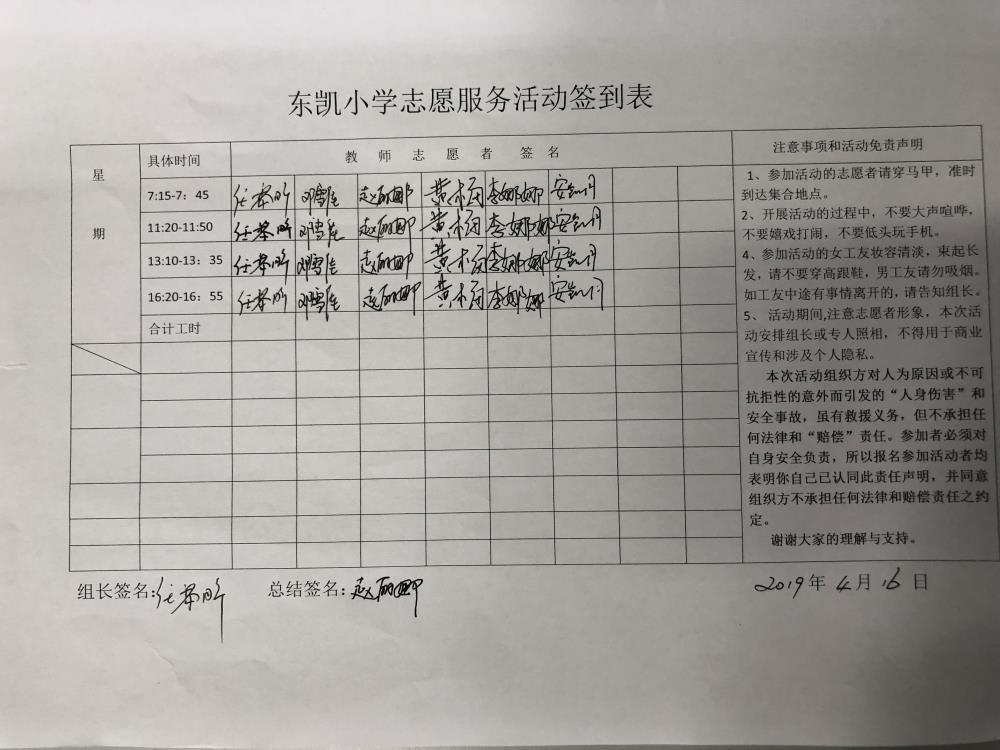 东凯小学志愿服务活动签到表
星期
具体时间
教师志愿者签名
注意事项和活动免责声明
7:15-7：45 赵丽娜 李娜娜 安凯月
11:20-11:50 赵丽娜 李娜娜 安凯月
13:10-13：35 赵丽娜 李娜娜 安凯月
16:20-16：55 赵丽娜 李娜娜 安凯月
合计工时
1、参加活动的志愿者请穿马甲，准时
到达集合地点。
2、开展活动的过程中，不要大声喧哗，
不要嬉戏打闹，不要低头玩手机。
4、参加活动的女工友妆容清淡，束起长
发，请不要穿高跟鞋，男工友请勿吸烟。
如工友中途有事情离开的，请告知组长。
5、 活动期间,注意志愿者形象，本次活
动安排组长或专人照相，不得用于商业
宣传和涉及个人隐私。
本次活动组织方对人为原因或不可
抗拒性的意外而引发的“人身伤害”和
安全事故，虽有救援义务，但不承担任
何法律和“赔偿”责任。参加者必须对
自身安全负责，所以报名参加活动者均
表明你自己已认同此责任声明，并同意
组织方不承担任何法律和赔偿责任之约
定。
谢谢大家的理解与支持。
组长签名: 总结签名: 赵丽娜 2019年 4月 16日